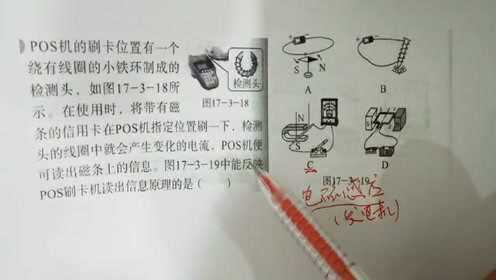 POS机的刷卡位置有一个
绕有线圈的小铁环制成的
检测头，如图17-3-18所
示。在使用时，将带有磁
条的信用卡在POS机指定位置刷一下，检测
头的线圈中就会产生变化的电流，POS机便
可读出磁条上的信息。图17-3-19中能反映
POS刷卡机读出信息原理的是（ ）
检测头
图17-3-18
S N
A
B
N
S
C
D
图17-3-19
电磁感应
(发电机)